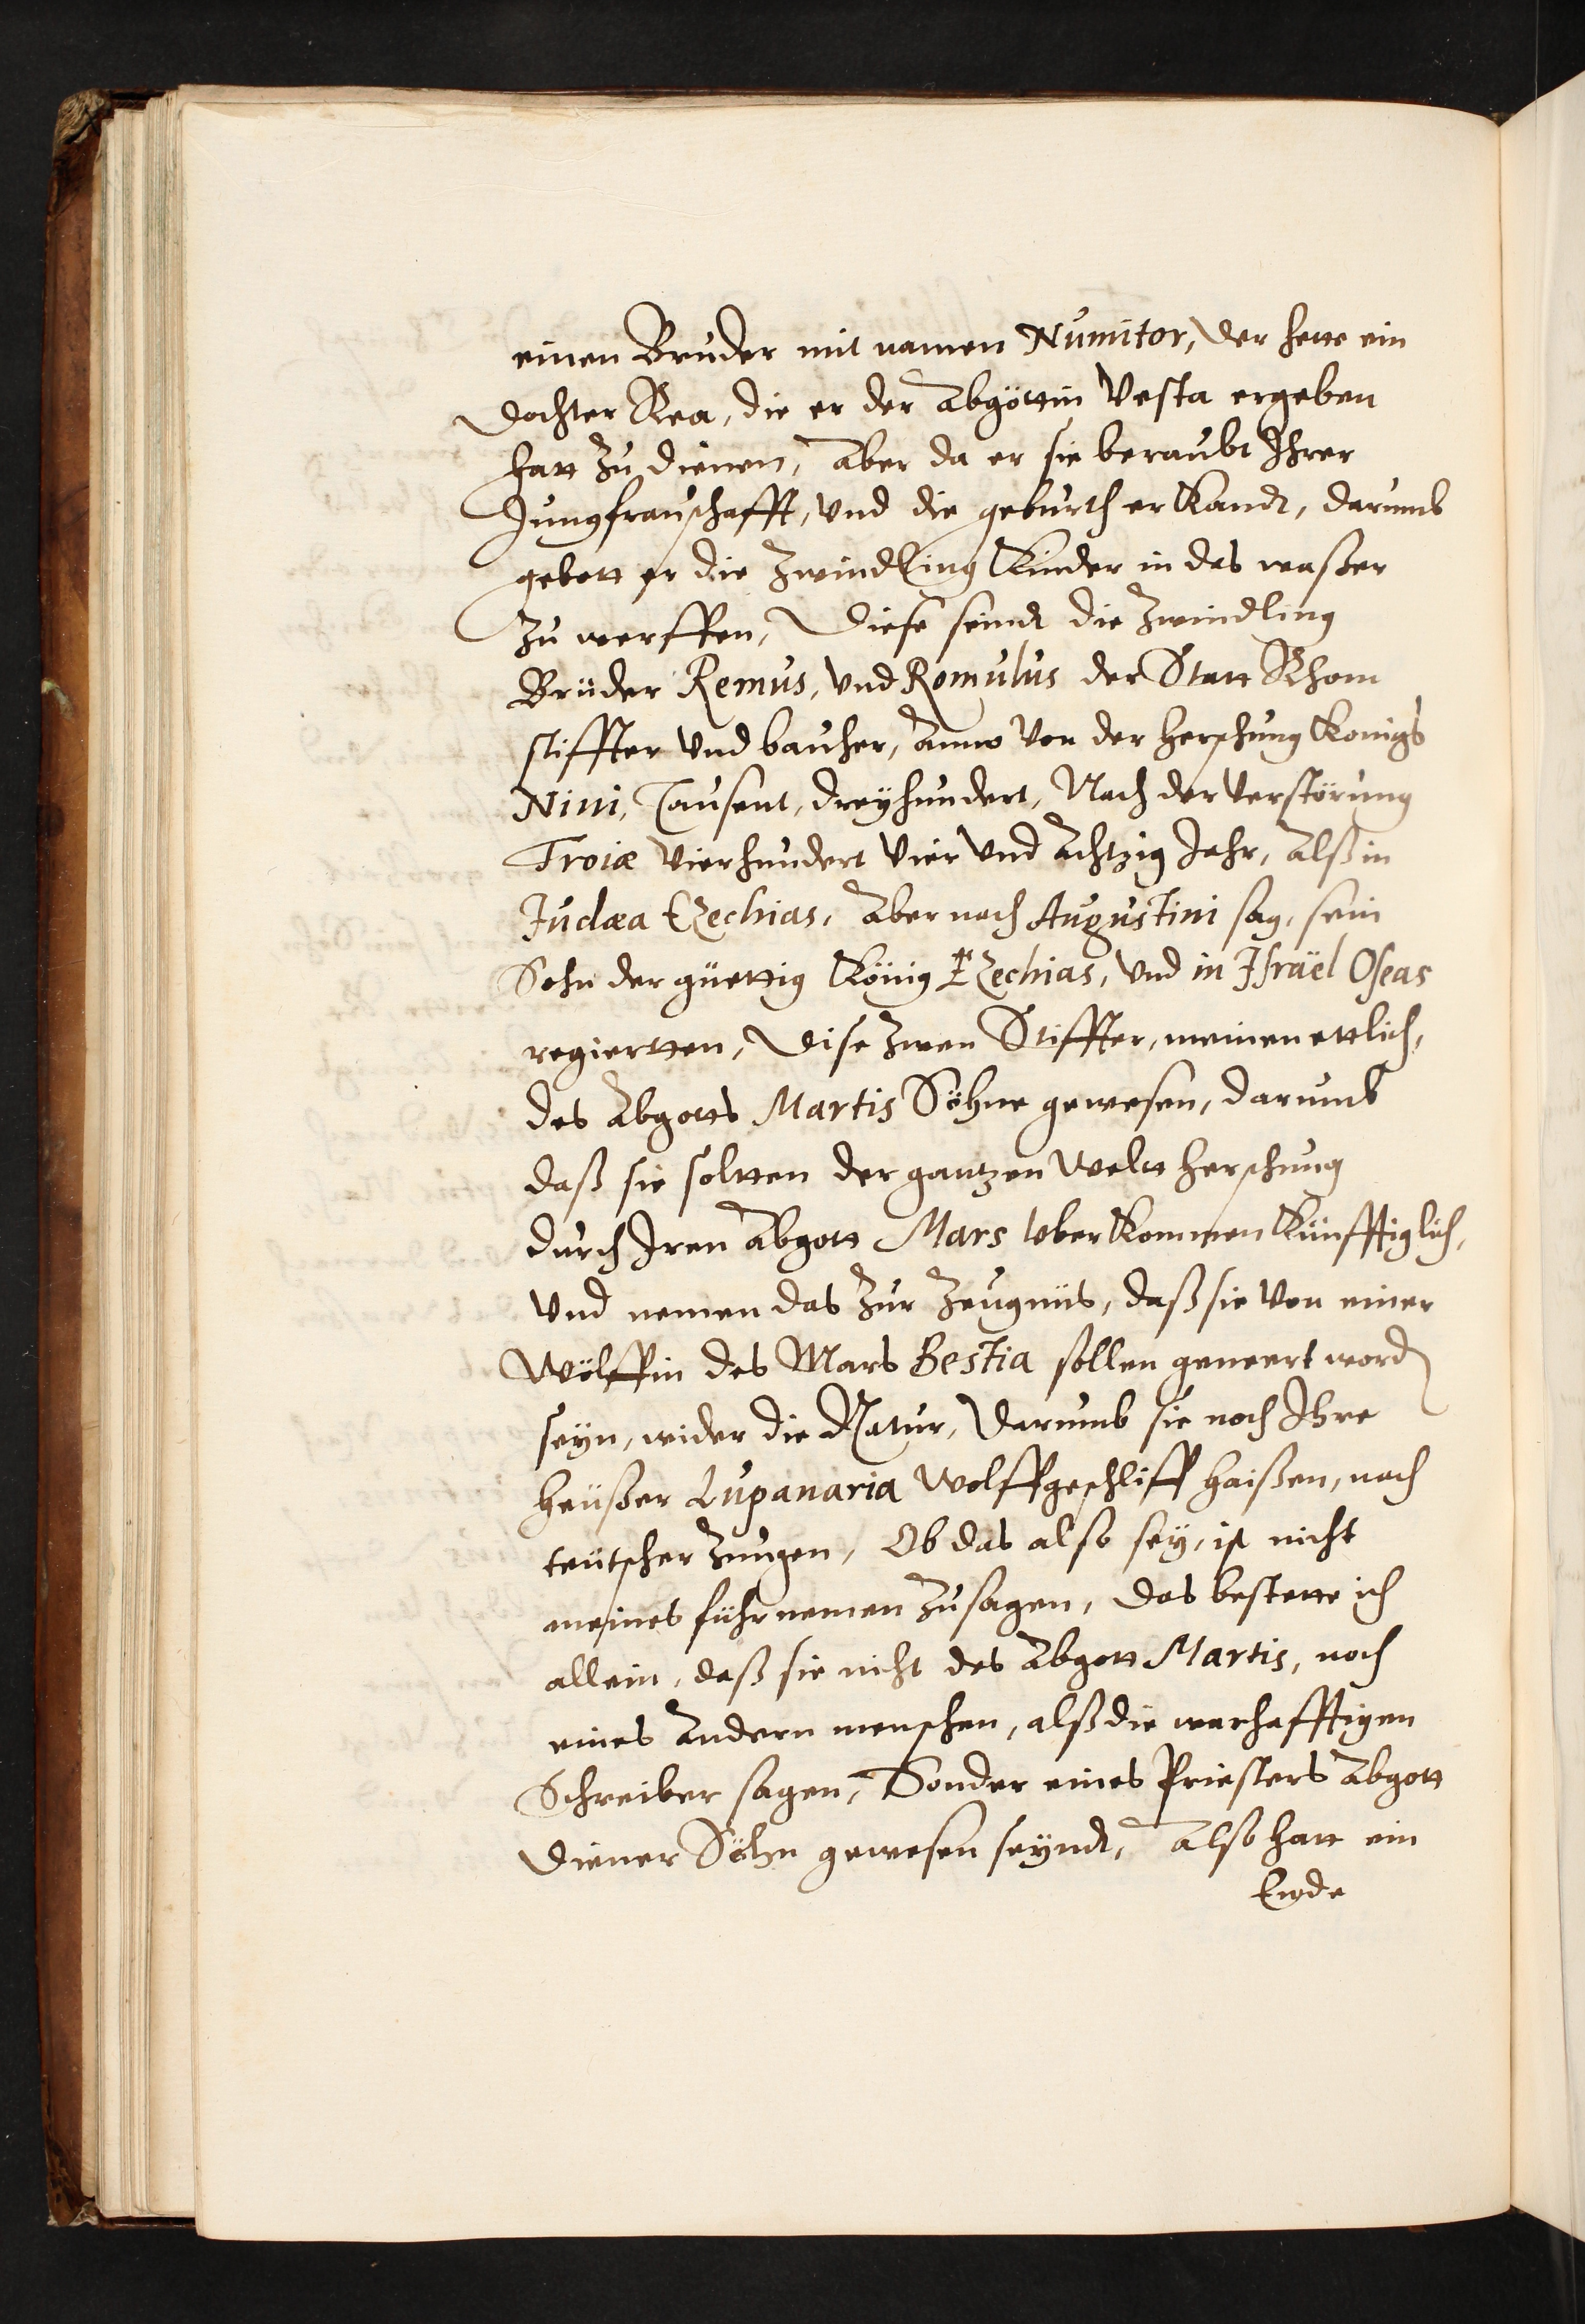 einen Bruder mit namen Numitor, der hette ein
Dochter Rea, die er der Abgöttin Vesta ergeben
hatt zu dienen, Aber da er sie beraubt Ihrer
Jungfrauschafft, vnd die geburth erkandt, darumb
gebott er die zwindling kinder in das waßer
zu werffen, Diese seindt die zwindling
Brüder Remus, vnd Romulus der Statt Rhom
stiffter vnd baucher, Anno von der herschung Konigs
Nini, Tausent, dreÿhundert, Nach der verstörung
Troiæ vierhundert vier vnd Achtzig Jahr, Alß in
Judæa Ezechias, Aber nach Augustini sag, sein
Sohn der güettig König Ezechias, vnd in Israël Oseas
regiertten, Dise zwen Stiffter, meinen ettlich,
des Abgotts Martis Söhne gewesen, darumb
daß sie soltten der gantzen weltt herschung
durch Iren Abgott Mars vberkommen künfftiglich,
vnd nemen das zur zeugnüs, daß sie von einer
Wölffin des Mars Bestia sollen geneert word
seyn, wider die Natur, Darumb sie noch Ihre
heüßer Lupanaria Wolffgeschliff haißen, nach
teütscher zungen, Ob das also seÿ, ist nicht
meines führnemen zusagen, das bestette ich
allein, daß sie nicht des Abgott Martis, noch
eines andern menschen, alß die warhafftigen
Schreiber sagen, Sonder eines Priesters Abgott
Diener Söhn gewesen seÿndt, Also hatt ein
Ende